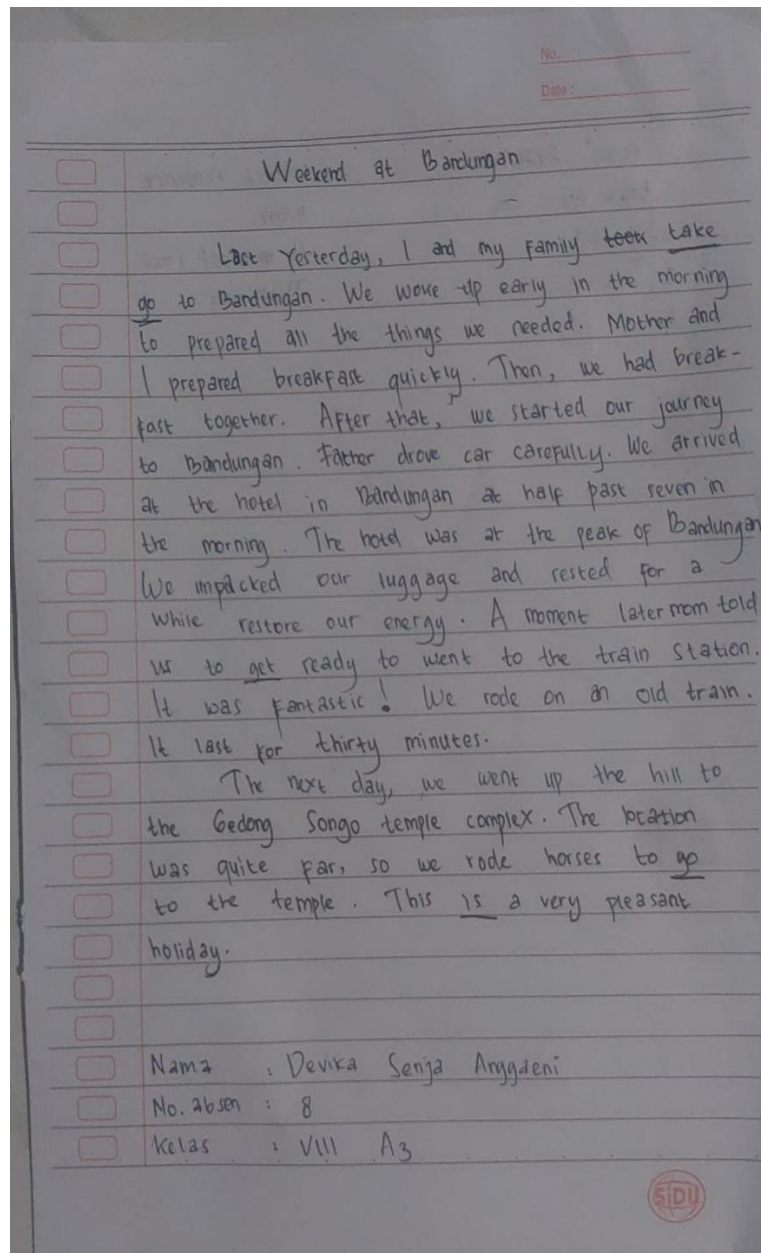 No.
Date :
Weekend at Bandungan
Last Yesterday, I and my family took take
go to Bandungan. We woke up early in the morning
to prepared all the things we needed. Mother and
I prepared breakfast quickly. Then, we had break-
fast together. After that, we started our journey
to Bandungan. Father drove car carefully. We arrived
at the hotel in Bandungan at half past seven in
the morning. The hotel was at the peak of Bandungan
We unpacked our luggage and rested for a
while restore our energy. A moment later mom told
us to get ready to went to the train station.
It was fantastic! We rode on an old train.
It last for thirty minutes.
The next day, we went up the hill to
the Gedong Songo temple complex. The location
was quite far, so we rode horses to go
to the temple. This is a very pleasant
holiday.
Nama : Devika Senja Anggdeni
No. absen : 8
Kelas : VIII A3
SiDU